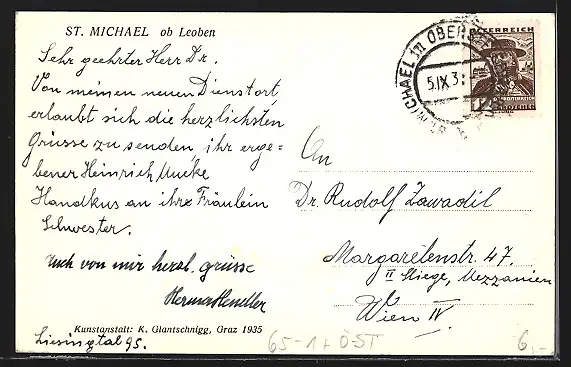 ST. MICHAEL ob Leoben
Sehr geehrter Herr Dr.
Von meinen neuen Dienstort
erlaubt sich die herzlichsten
Grüsse zu senden, ihr erge=
bener Heinrich Mucke
Handkus an ihre Fräulein
Schwester.
Auch von mir herzl. grüsse
Kunstanstalt: K. Glantschnigg, Graz 1935
Liesingtal 95.
ÖSTERREICH
ST. MICHAEL in OBERST
5.IX.3
12
An
Dr. Rudolf Zawadil
Margaretenstr. 47.
II Stiege, Mezzanien
Wien IV.
65-1+ÖST
6,-